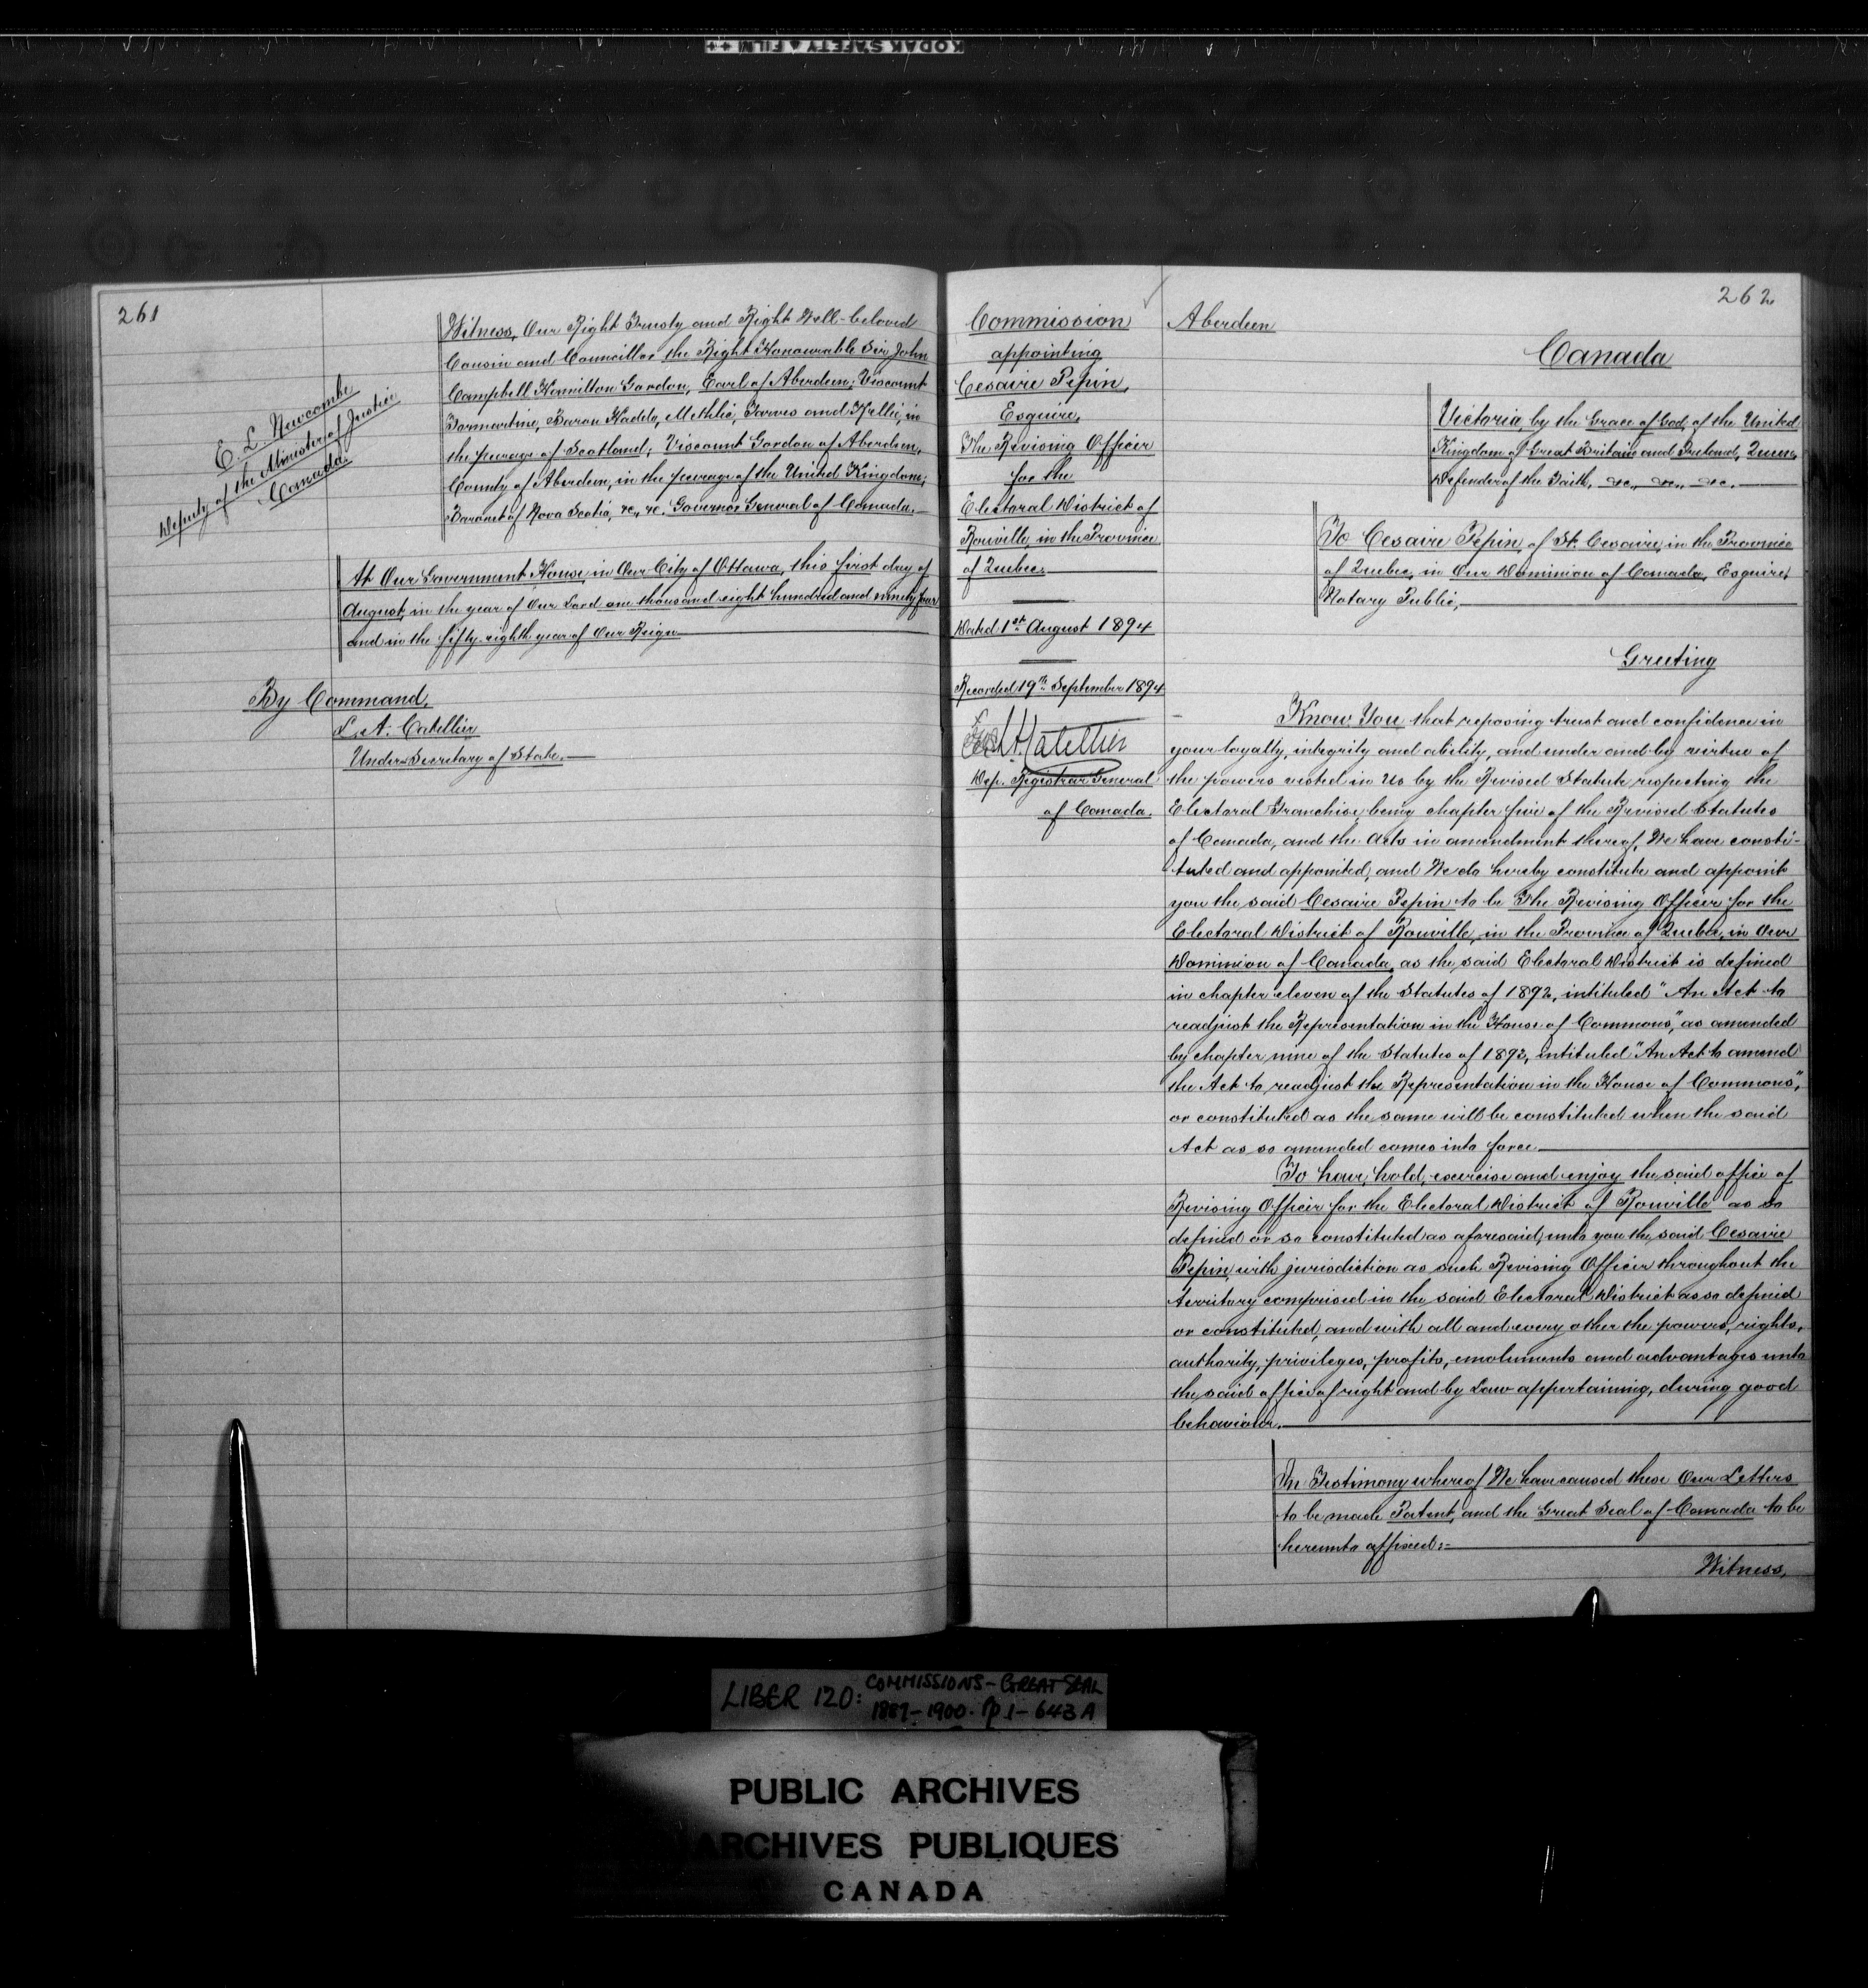 KODAK SAFETY FILM ++
261
Witness, Our Right Trusty and Right Well-beloved
Cousin and Councillor the Right Honourable Sir John
Campbell Hamilton Gordon, Earl of Aberdeen; Viscount
Formartine, Baron Haddo, Methlic, Tarves and Kellie, in
the peerage of Scotland; Viscount Gordon of Aberdeen,
County of Aberdeen, in the peerage of the United Kingdom;
Baronet of Nova Scotia, &c., &c. Governor General of Canada.
E. L. Newcombe
Deputy of the Minister of Justice
Canada.
At Our Government House, in Our City of Ottawa, this first day of
August, in the year of Our Lord one thousand eight hundred and ninety four
and in the fifty-eighth year of Our Reign
By Command,
L. A. Catellier
Under-Secretary of State.
262
Commission
appointing
Cesaire Pepin,
Esquire,
The Revising Officer
for the
Electoral District of
Rouville, in the Province
of Quebec.
Dated 1st August 1894
Recorded 19th September 1894
L. A. Catellier
Dep. Registrar General
of Canada.
Aberdeen
Canada
Victoria, by the Grace of God, of the United
Kingdom of Great Britain and Ireland, Queen,
Defender of the Faith, &c., &c., &c.
To Cesaire Pepin, of St. Cesaire, in the Province
of Quebec, in Our Dominion of Canada, Esquire,
Notary Public,
Greeting
Know You that reposing trust and confidence in
your loyalty, integrity and ability, and under and by virtue of
the powers vested in Us by the Revised Statute respecting the
Electoral Franchise, being chapter five of the Revised Statutes
of Canada, and the Acts in amendment thereof, We have consti-
tuted and appointed, and We do hereby constitute and appoint
you the said Cesaire Pepin to be The Revising Officer for the
Electoral District of Rouville, in the Province of Quebec, in Our
Dominion of Canada, as the said Electoral District is defined
in chapter eleven of the Statutes of 1892, intituled "An Act to
readjust the Representation in the House of Commons", as amended
by chapter nine of the Statutes of 1893, intituled "An Act to amend
the Act to readjust the Representation in the House of Commons",
or constituted as the same will be constituted when the said
Act as so amended comes into force
To have, hold, exercise and enjoy the said office of
Revising Officer for the Electoral District of Rouville as so
defined or so constituted as aforesaid, unto you the said Cesaire
Pepin, with jurisdiction as such Revising Officer throughout the
territory comprised in the said Electoral District as so defined
or constituted, and with all and every other the powers, rights,
authority, privileges, profits, emoluments and advantages unto
the said office of right and by Law appertaining, during good
behaviour.
In Testimony whereof We have caused these Our Letters
to be made Patent, and the Great Seal of Canada to be
hereunto affixed:-
Witness,
LIBER 120: COMMISSIONS - GREAT SEAL
1887-1900. pp 1-643A
PUBLIC ARCHIVES
ARCHIVES PUBLIQUES
CANADA